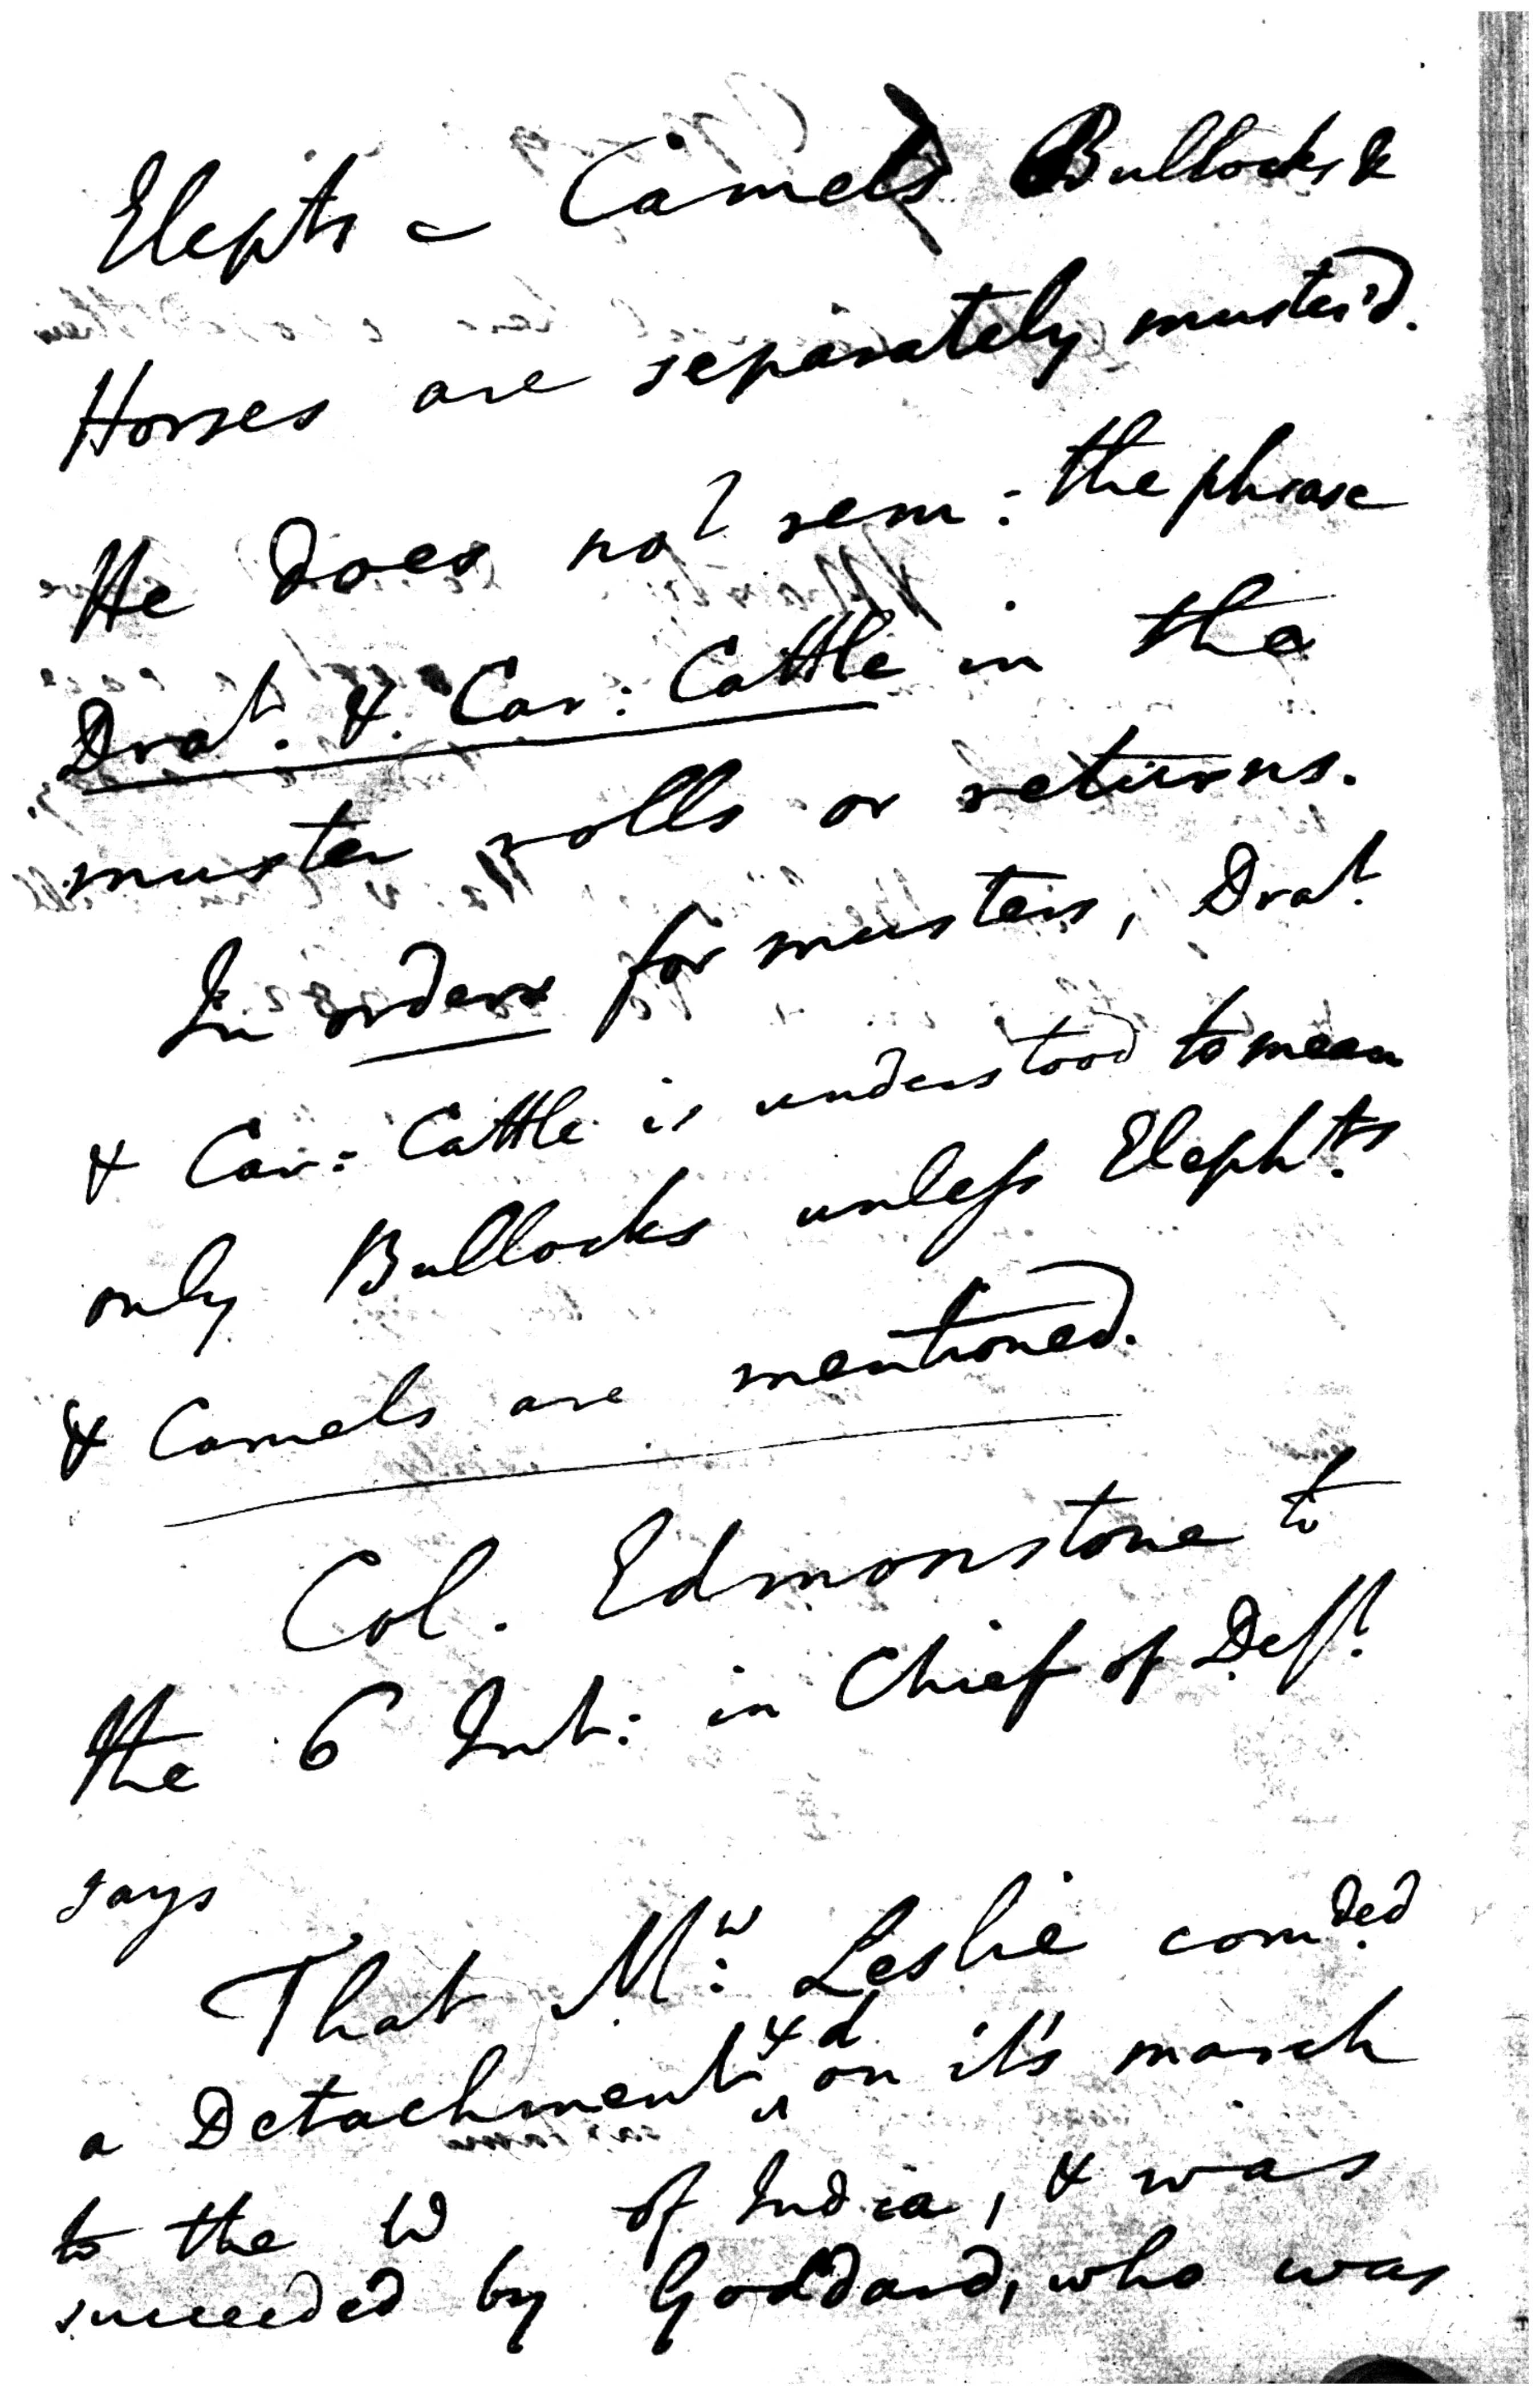 Elepts - Camels Bullocks &
Horses are separately muster'd.
He does not rem: the phrase
Drat. & Car: Cattle in the
muster rolls or returns.
In orders for musters, Drat.
& Car: Cattle is understood to mean
only Bullocks unless Elephts.
& Camels are mentioned.
Col. Edmonstone to
the 6 Int: in Chief of Deft.
says
That Mr: Leslie comded.
a Detachment on it's march
to the W of India, & was
succeeded by Goddard, who was